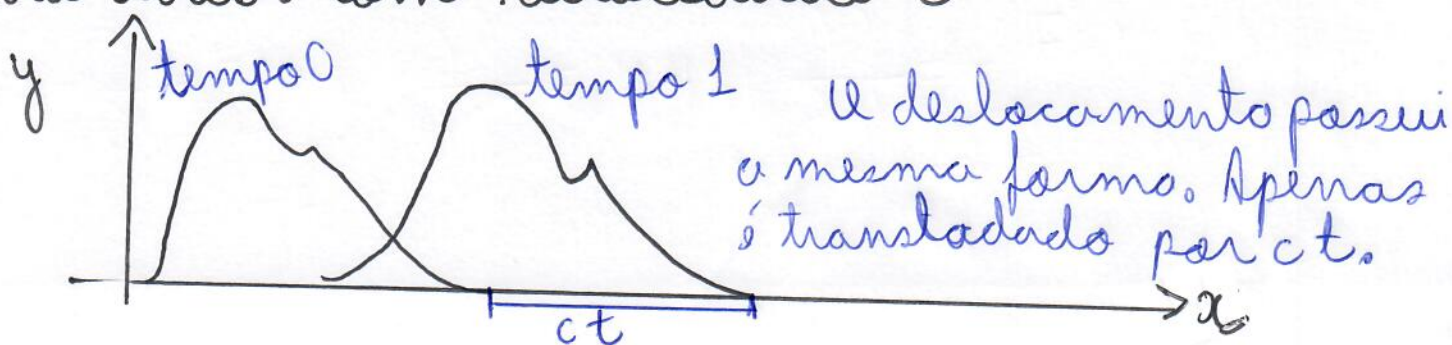 com velocidade c
y
tempo 0
tempo 1
O deslocamento possui
a mesma forma. Apenas
é transladado por ct.
x
ct